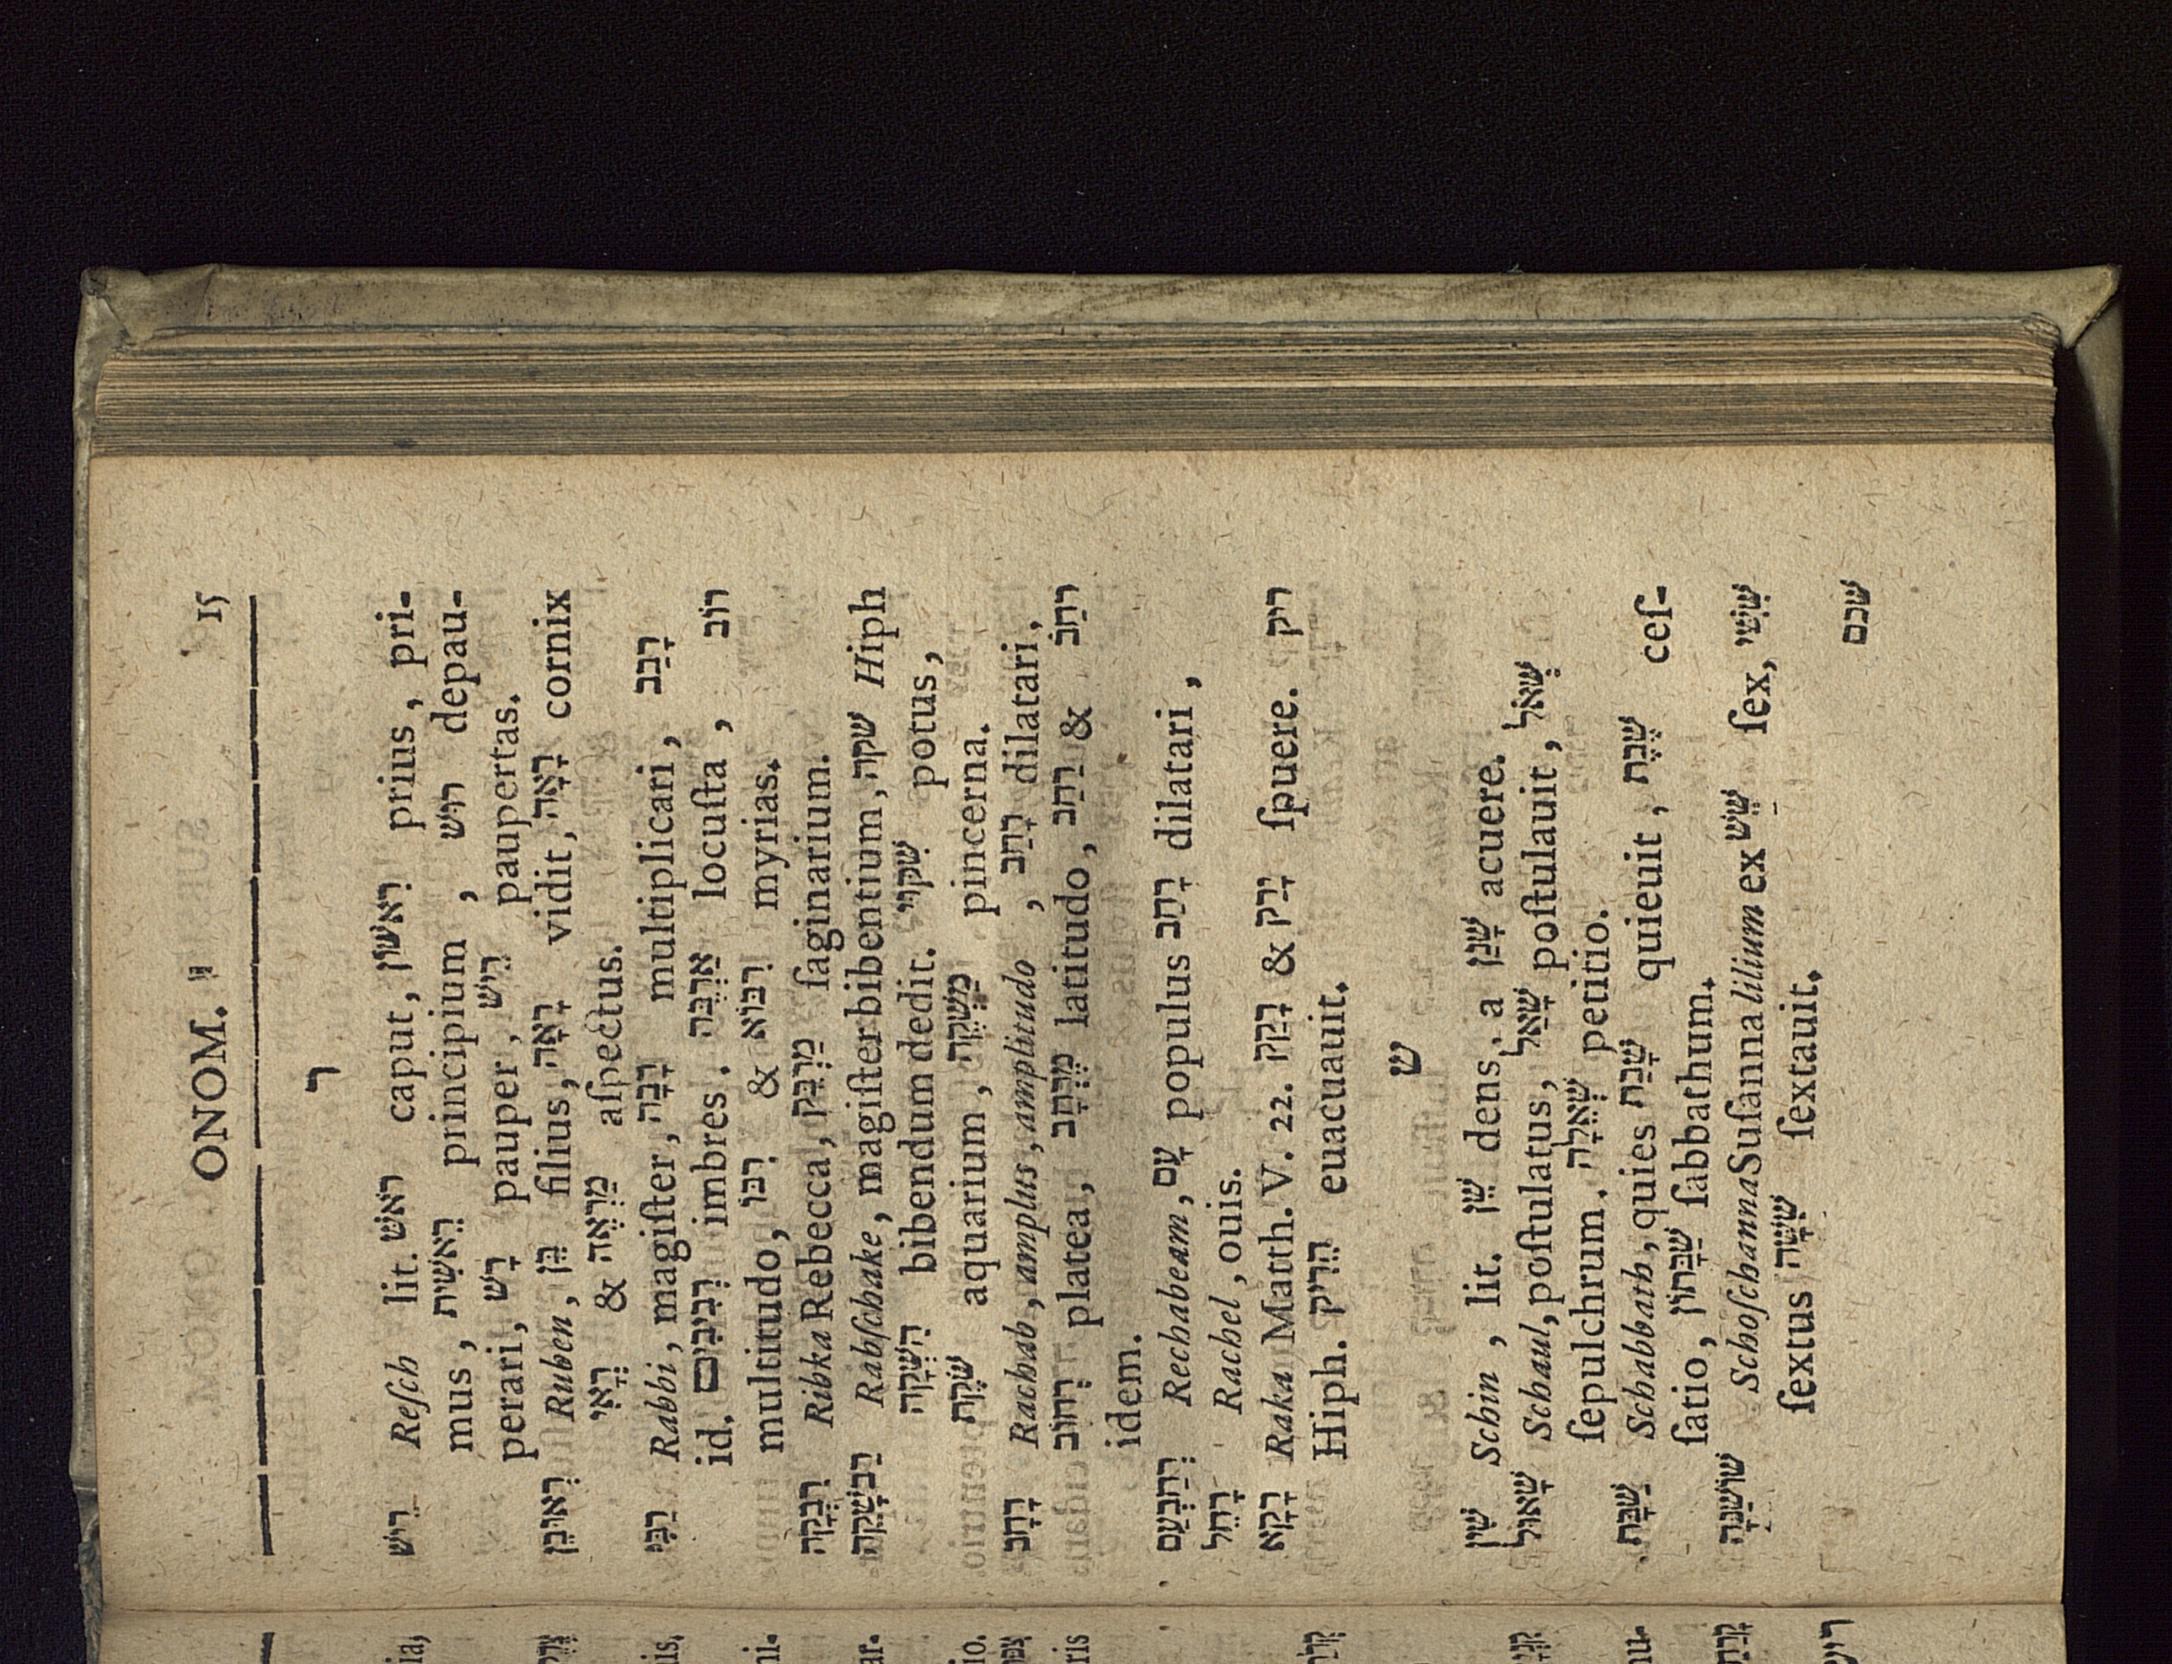 ONOM. 15
ר
רֵישׁ Reſch lit. ראשׁ caput, רִאשׁוֹן prius, pri-
mus, רֵאשִׁית principium, רוּשׁ depau-
perari, רָשׁ pauper, רֵישׁ paupertas.
רְאוּבֵן Ruben, בֵּן filius, רָאָה vidit, רָאָה cornix
רֳאִי & מַרְאֶה aſpectus.
רַבִּי Rabbi, magiſter, רָבָה multiplicari, רָבַב
id. רְבִיבִים imbres. אַרְבֶּה locuſta, רוֹב
multitudo, רִבּוֹ & רִבּוֹא myrias.
רִבְקָה Ribka Rebecca, מַרְבֵּק ſaginarium.
רַבְשָׁקֵה Rabſchake, magiſter bibentium, שקה Hiph
הִשְׁקָה bibendum dedit. שִׁקּוּי potus,
שֹׁקֶת aquarium, מַשְׁקֶה pincerna.
רָחָב Rachab, amplus, amplitudo, רָחַב dilatari,
רְחוֹב platea, מֶרְחָב latitudo, רַחַב & רֹחַב
idem.
רְחַבְעָם Rechabeam, עָם populus רָחַב dilatari,
רָחֵל Rachel, ouis.
רָקָא Raka Matth. V. 22. רָקַק & יָרַק ſpuere. ריק
Hiph. הֵרִיק euacuauit.
ש
שִׁין Schin, lit. שֵׁן dens, a שָׁנַן acuere.
שָׁאוּל Schaul, poſtulatus, שָׁאַל poſtulauit, שְׁאֹל
ſepulchrum. שְׁאֵלָה petitio.
שַׁבָּת Schabbath, quies שָׁבַת quieuit, שֶׁבֶת ceſ-
ſatio, שַׁבָּתוֹן ſabbathum.
שׁוֹשַׁנָּה Schoſchanna Suſanna lilium ex שֵׁשׁ ſex, שִׁשִּׁי
ſextus שִׁשָּׁה ſextauit.
שכם